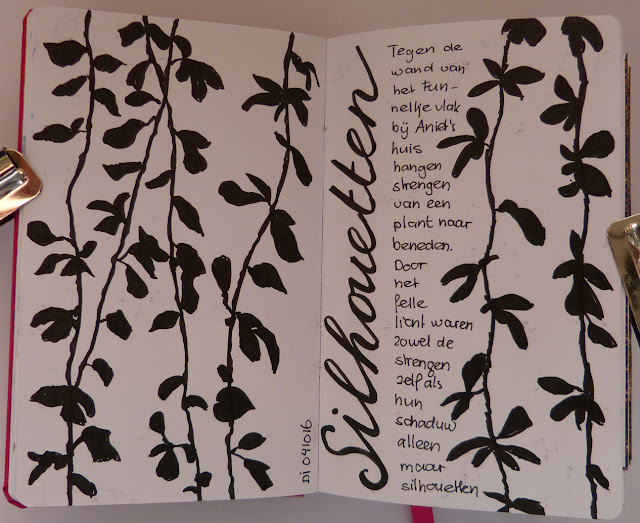 di 041016
Silhouetten
Tegen de
wand van
het tun-
nelтje vlak
bij Anid's
huis
hangen
strengen
van een
plant naar
beneden.
Door
het
felle
licht waren
zowel de
strengen
zelf als
hun
schaduw
alleen
maar
silhouetten